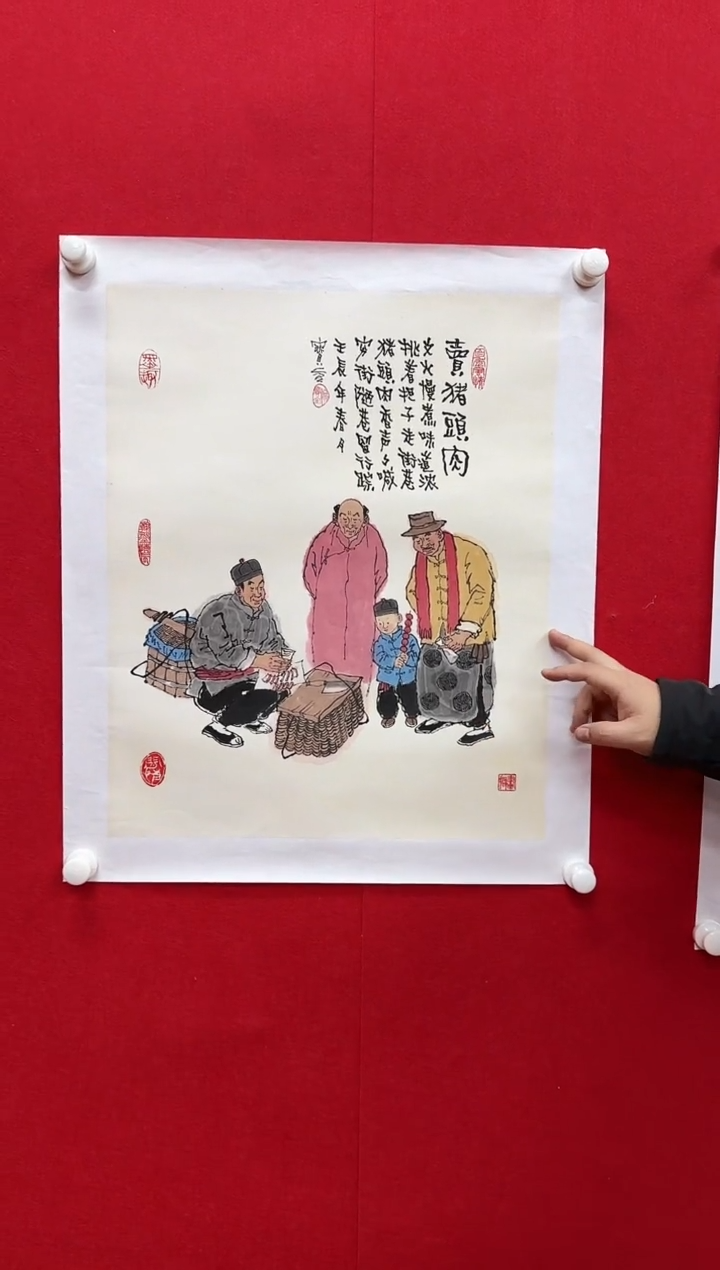 賣猪頭肉
文火慢煮味道浓
挑着担子走街巷
猪頭肉香声声喊
穿街随巷留行踪
壬辰年春月
寶云